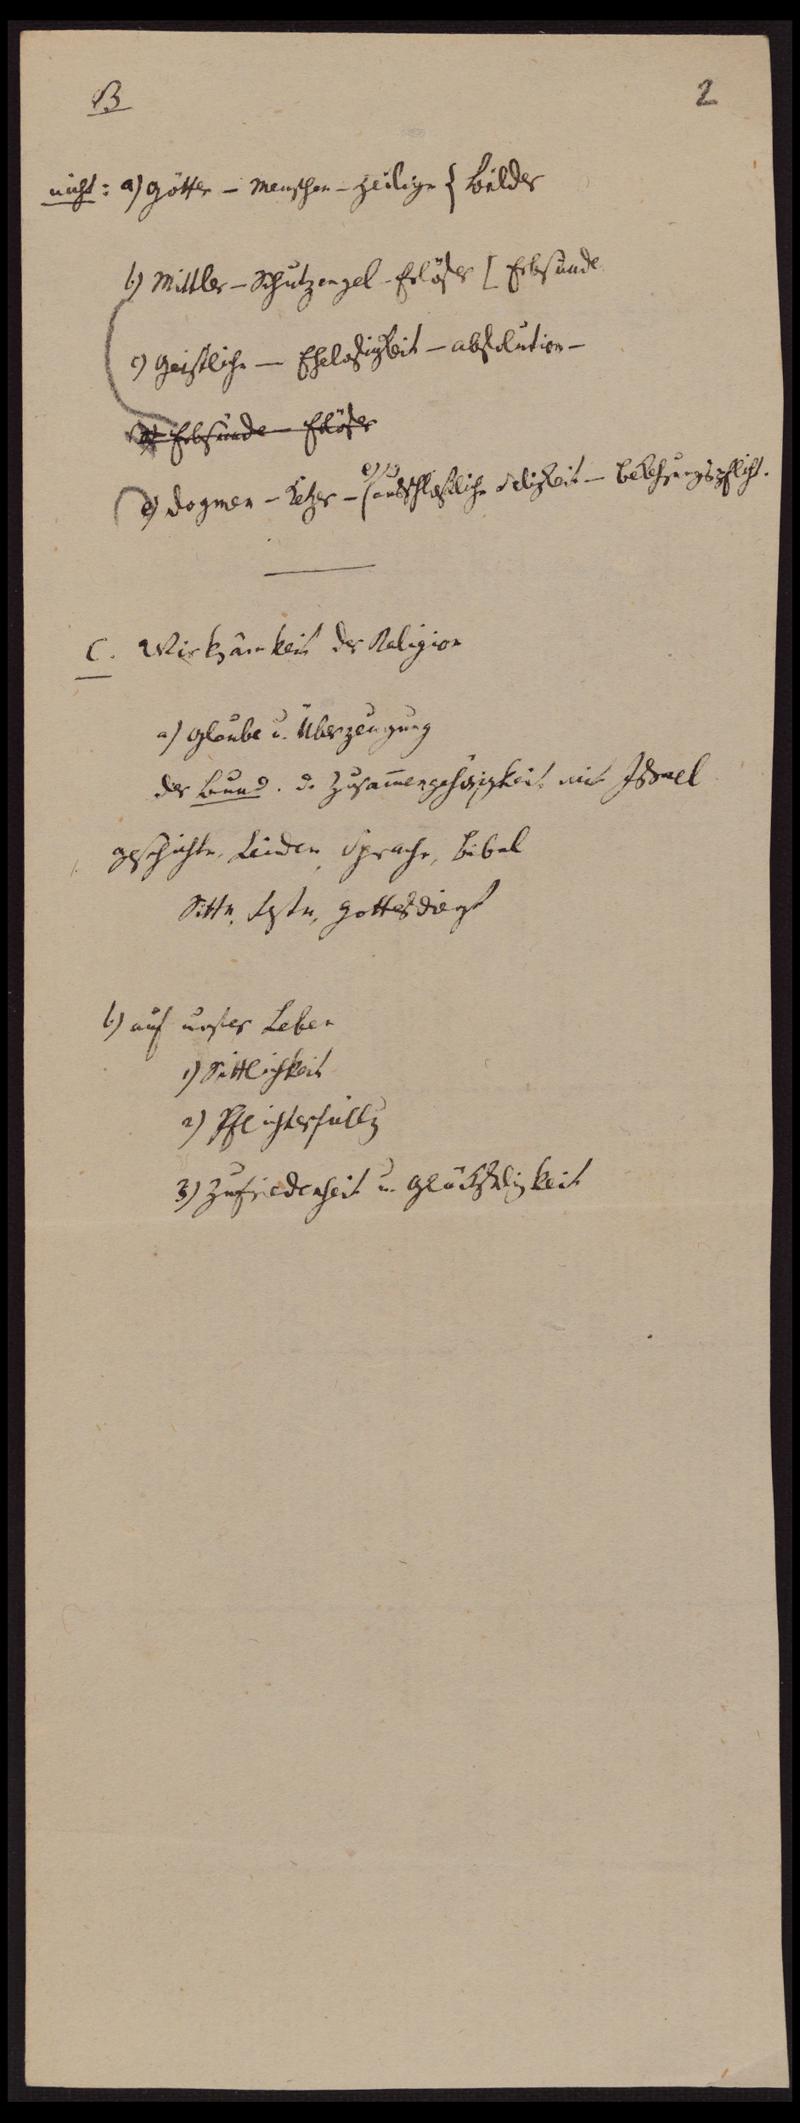 B 2
nicht: a) Götter – Menschen – Heilige { Bilder
b) Mittler – Schutzengel – Erlöser [ Erbsünde
c) Geistliche – Ehelosigkeit – Absolution –
Erbsünde – Erlöser
d) Dogmen – Ketzer – (ausschließliche Seligkeit – Bekehrungspflicht.
C. Wirksamkeit der Religion
a) Glaube u. Überzeugung
der Bund. d. Zusammengehörigkeit mit Israel
Geschichte, Leiden, Sprache, Bibel
Sitte, Feste, Gottesdienst
b) auf unser Leben
1) Sittlichkeit
2) Pflichterfüllg
3) Zufriedenheit u. Glückseligkeit